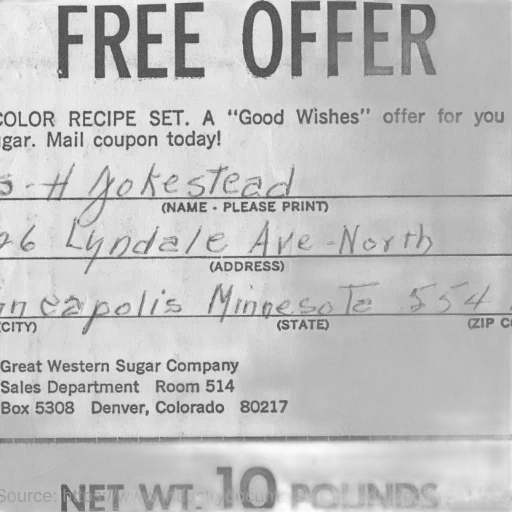 FREE OFFER
COLOR RECIPE SET. A "Good Wishes" offer for you
gar. Mail coupon today!
s-H Jokestead
(NAME - PLEASE PRINT)
26 Lyndale Ave-North
(ADDRESS)
nneapolis Minnesota 554
(CITY) (STATE) (ZIP C
Great Western Sugar Company
Sales Department Room 514
Box 5308 Denver, Colorado 80217
NET WT. 10 POUNDS
Source: